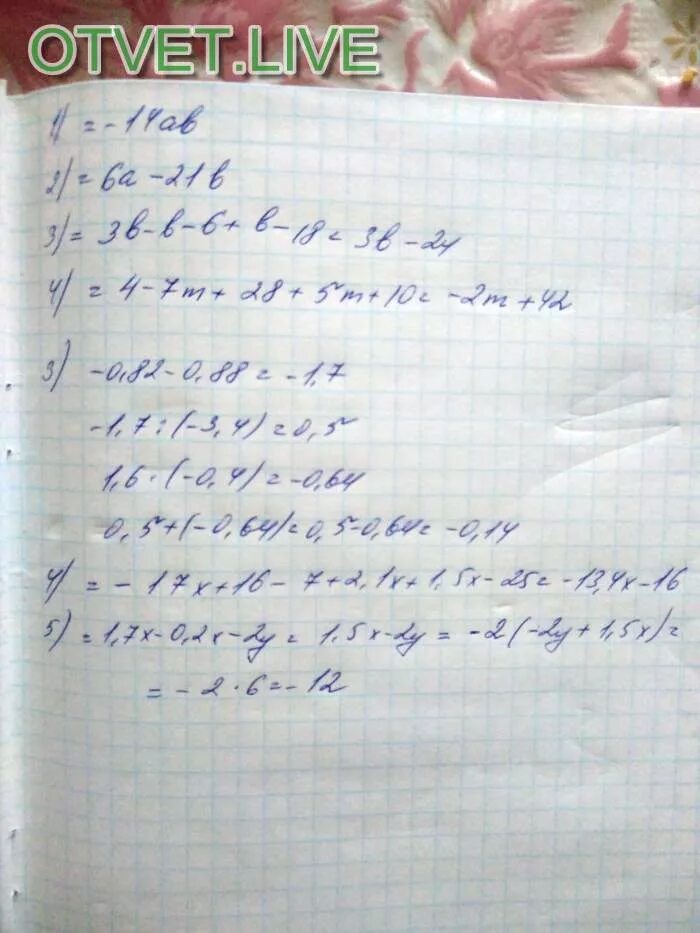 OTVET.LIVE
1) = -14ab
2) = 6a - 21b
3) = 3b - b - 6 + b - 18 = 3b - 24
4) = 4 - 7m + 28 + 5m + 10 = -2m + 42
3) -0,82 - 0,88 = -1,7
-1,7 : (-3,4) = 0,5
1,6 · (-0,4) = -0,64
0,5 + (-0,64) = 0,5 - 0,64 = -0,14
4) = -17x + 16 - 7 + 2,1x + 1,5x - 25 = -13,4x - 16
5) = 1,7x - 0,2x - 2y = 1,5x - 2y = -2(-2y + 1,5x) =
= -2 · 6 = -12